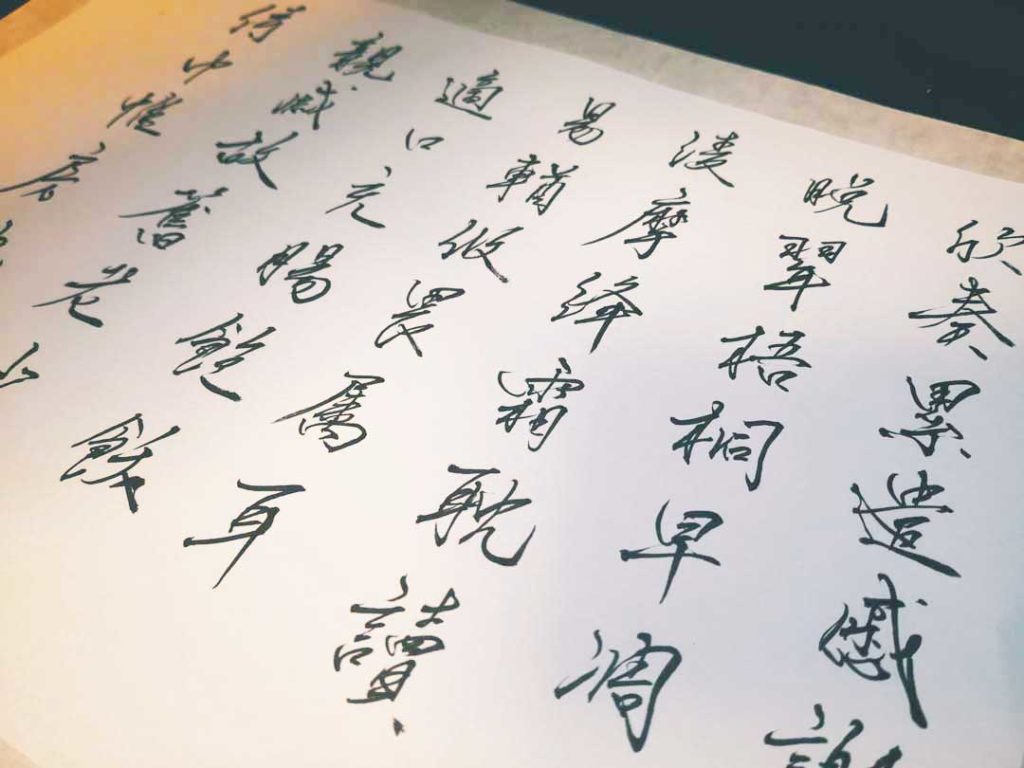 欣奏累遣慼謝
晚翠梧桐早凋
凌摩絳霄耽讀
易輶攸畏屬耳
適口充腸飽飫
親戚故舊老少
侍巾帷房